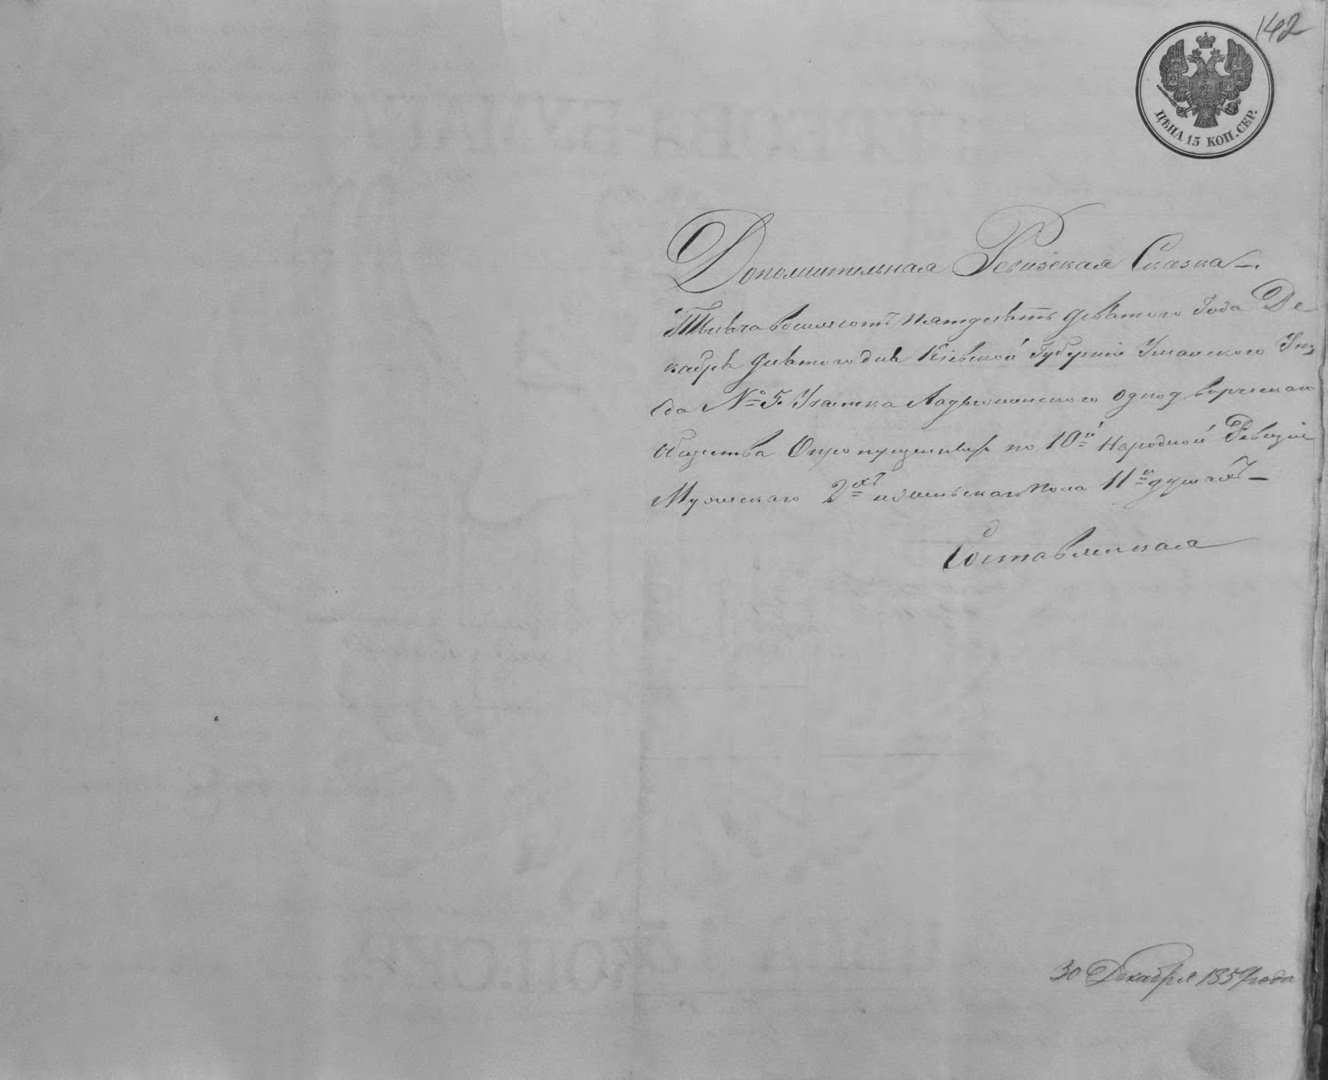 142
ЦѢНА 15 КОП. СЕР.
Дополнительная Ревизская Сказка
Тысяча восемсотъ пятдесятъ девятого Года Де
кабря девятого дня Кіевской Губерніи Уманского Уез
да № 5. Участка Ладыжинского однодворческаго
общества О пропущенныхъ по 10й Народной Ревизіи
Мужескаго 2хъ и женскаго пола 11и душахъ
Составленная
30 Декабря 1859 года
ЦѢНА 15 КОП. СЕР